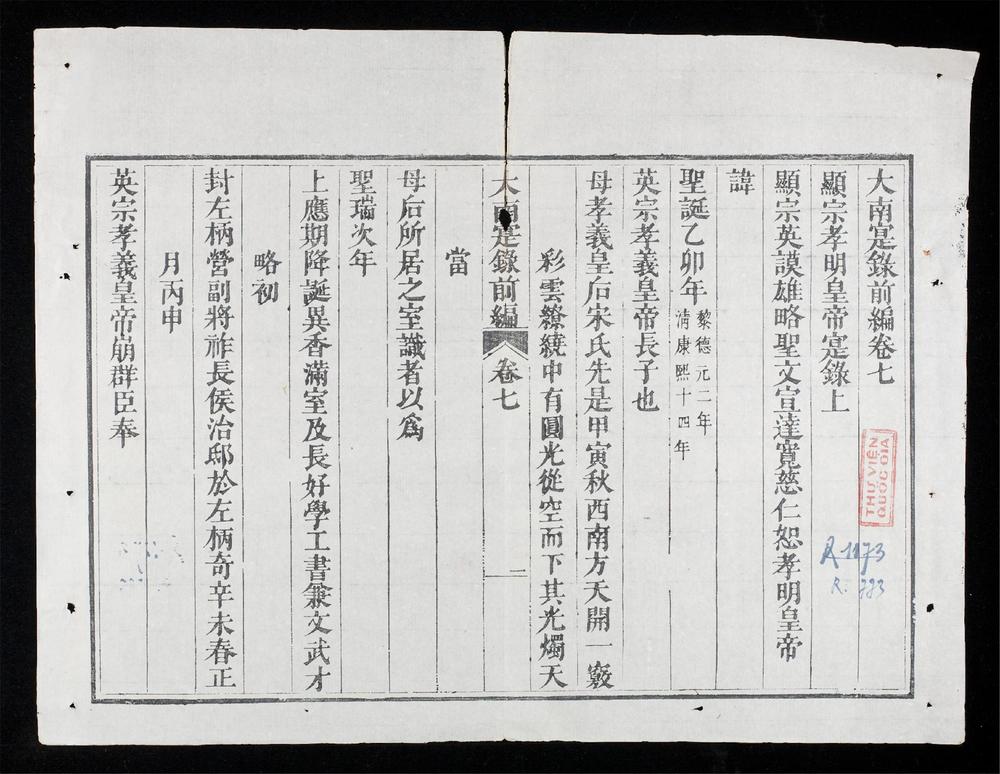 大南寔錄前編卷七
顯宗孝明皇帝寔錄上
顯宗英謨雄略聖文宣達寬慈仁恕孝明皇帝
諱
聖誕乙卯年黎德元二年
清康熙十四年
英宗孝義皇帝長子也
母孝義皇后宋氏先是甲寅秋西南方天開一竅
彩雲繚繞中有圓光從空而下其光燭天
大南寔錄前編 卷七 一
當
母后所居之室識者以爲
聖瑞次年
上應期降誕異香滿室及長好學工書兼文武才
略初
封左柄營副將祚長侯治邸於左柄奇辛未春正
月丙申
英宗孝義皇帝崩群臣奉
THƯ VIỆN
QUỐC GIA
R.1173
R. 773